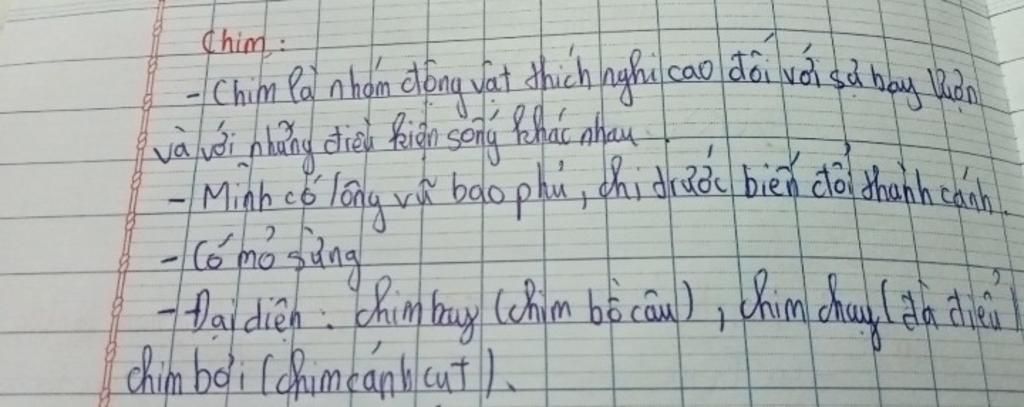 Chim:
- Chim là nhóm động vật thích nghi cao đối với sự bay lượn
và với những điều kiện sống khác nhau.
- Mình có lông vũ bao phủ, chi trước biến đổi thành cánh.
- Có mỏ sừng
- Đại diện: Chim bay (chim bồ câu), chim chạy (đà điểu)
chim bơi (chim cánh cụt).